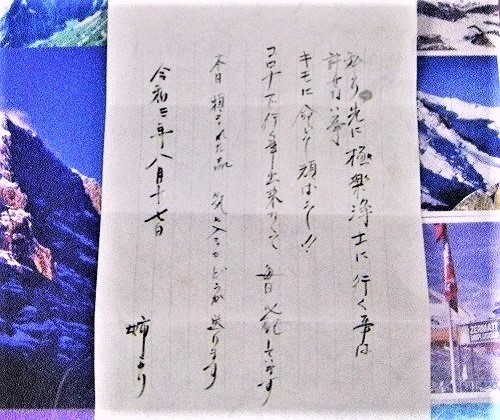 私より先に極楽浄土に行く事は
許
キモに命じて頑ばレー!!
コロナ下行事出来なくて 毎日心配しています
本日頼まれた品 気に入るかどうか送ります
令和三年八月十七日
姉より
ZERMATT